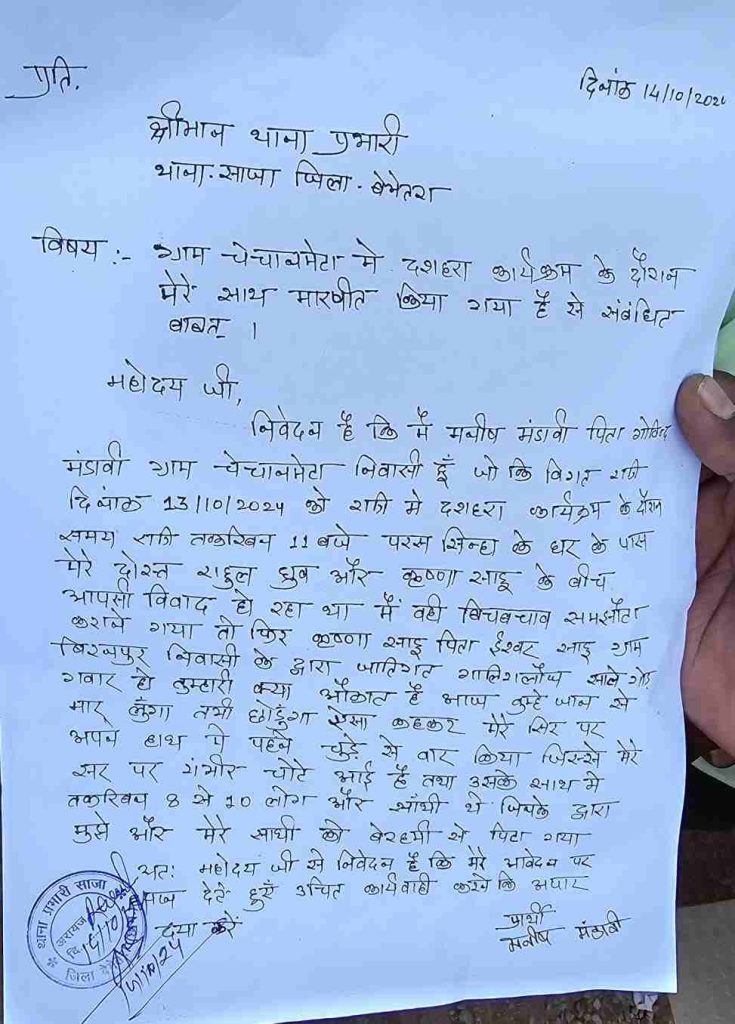 प्रति,
दिनांक 14/10/202
श्रीमान थाना प्रभारी
थाना-साजा जिला-बेमेतरा
विषय :- ग्राम चेचानमेटा मे दशहरा कार्यक्रम के दौरान
मेरे साथ मारपीट किया गया है से संबंधित
बाबत् ।
महोदय जी,
निवेदन है कि मै मनीष मंडावी पिता गोविंद
मंडावी ग्राम चेचानमेटा निवासी हूँ जो कि विगत रात्री
दिनांक 13/10/2024 को रात्री मे दशहरा कार्यक्रम के दौरान
समय रात्री तकरिबन 11 बजे परस सिन्हा के घर के पास
मेरे दोस्त राहुल ध्रुव और कृष्णा साहू के बीच
आपसी विवाद हो रहा था मैं वही बिचबचाव समझौता
कराने गया तो फिर कृष्णा साहू पिता ईश्वर साहू ग्राम
बिरजपुर निवासी के द्वारा जातिगत गालिगलौच साले गोड़
गवार हो तुम्हारी क्या औकात है आज तुम्हे जान से
मार लुंगा तभी छोडुंगा ऐसा कहकर मेरे सिर पर
अपने हाथ मे पहने चुड़े से वार किया जिससे मेरे
सर पर गंभीर चोटे आई है तथा उसके साथ मे
तकरिबन 8 से 10 लोग और साथी थे जिनके द्वारा
मुझे और मेरे साथी को बेरहमी से पिटा गया
अतः महोदय जी से निवेदन है कि मेरे आवेदन पर
देते हुऐ उचित कार्यवाही करने कि अपार
दया करे
प्रार्थी
मनीष मंडावी
थाना प्रभारी साजा
14/10/24
जिला